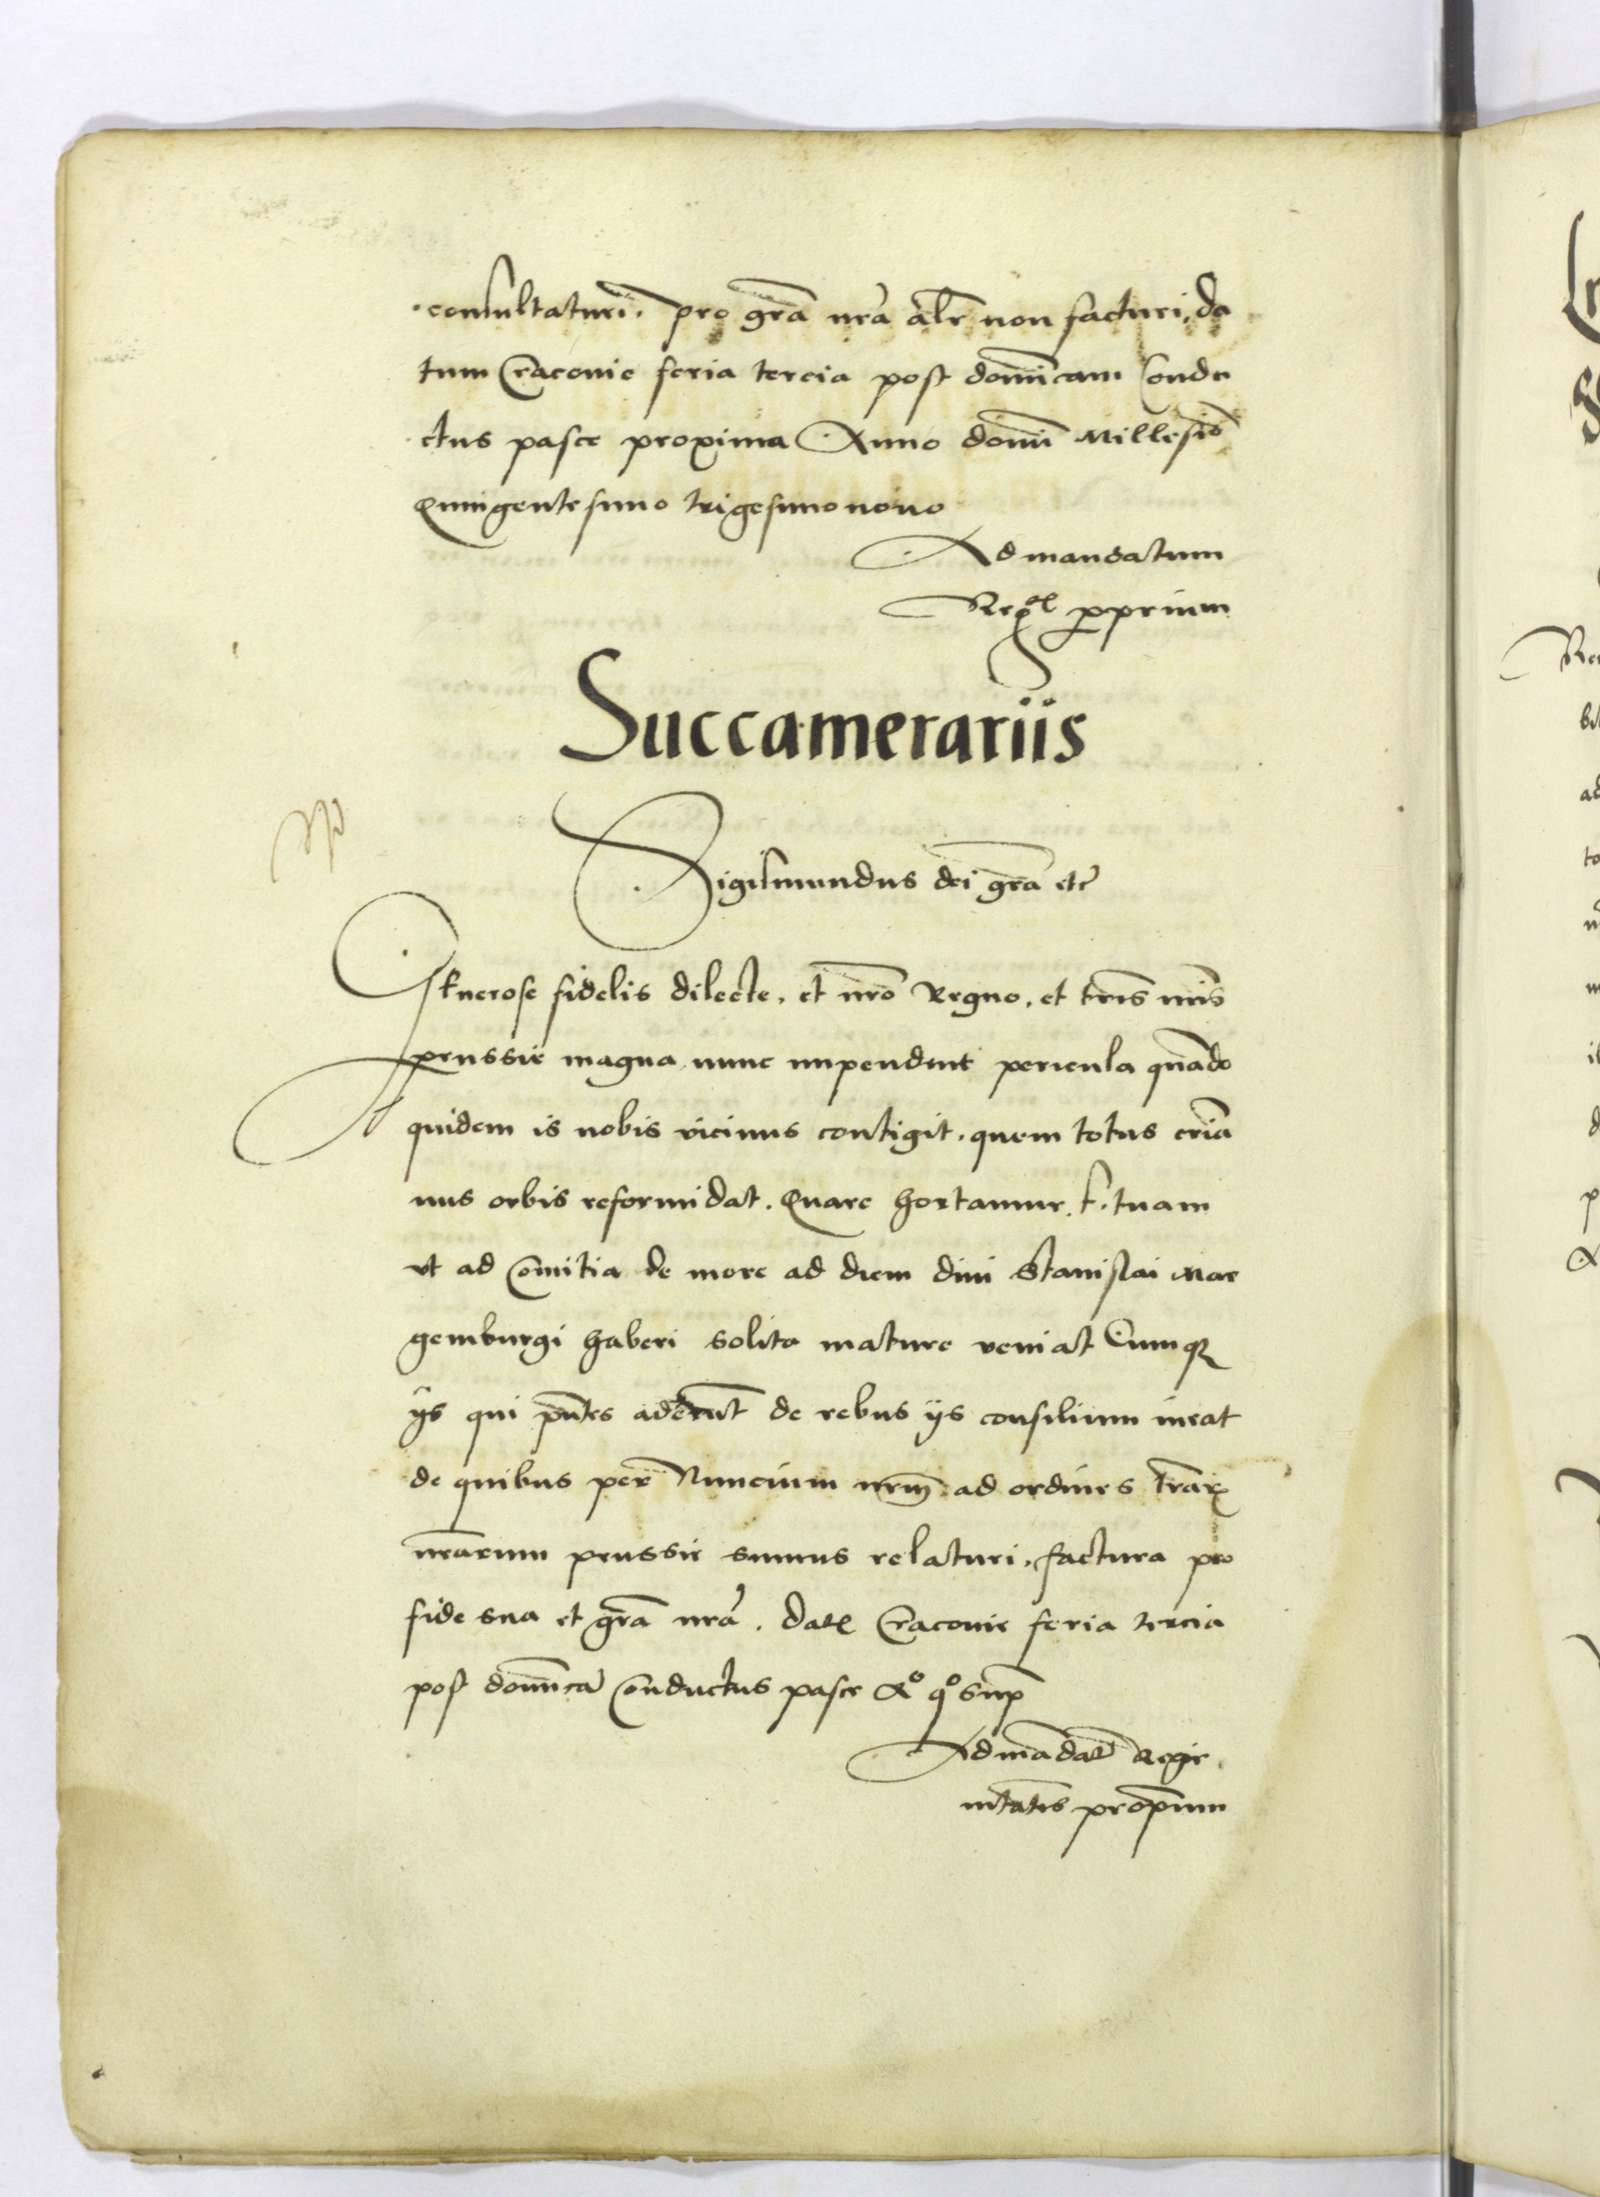 consultaturi. pro grã nrã alr̃ non facturi, da
tum Cracovie feria tercia post domĩcam Condu
ctus pasce proxima Anno domĩ Millesiõ
Quingentesimo trigesimonono
Ad mandatum
Reg proprium
Succamerariis
Sigismundus dei grã etc̃
Generose fidelis dilecte, et nrõ Regno, et tris̃ nris̃
prussie magna nunc impendent pericula quãdo
quidem is nobis vicinus contigit. quem totus cr̃ia
nus orbis reformidat. Quare hortamur f. tuam
vt ad Comitia de more ad diem divi Stanislai Mar
gemburgi haberi solita mature veniat Cumqꝫ
ijs qui pñtes aderũt de rebus ijs consilium ineat
de quibus per Nuncium nrm̃ ad ordines trarꝫ̃
nrãrum prussie sumus relaturi. factura pro
fide sua et grã nrã. dat Cracovie feria tercia
post domĩcã Conductus pasce Aº qº sup̃
Ad mãdat̃ Regie
mtãtis proprium